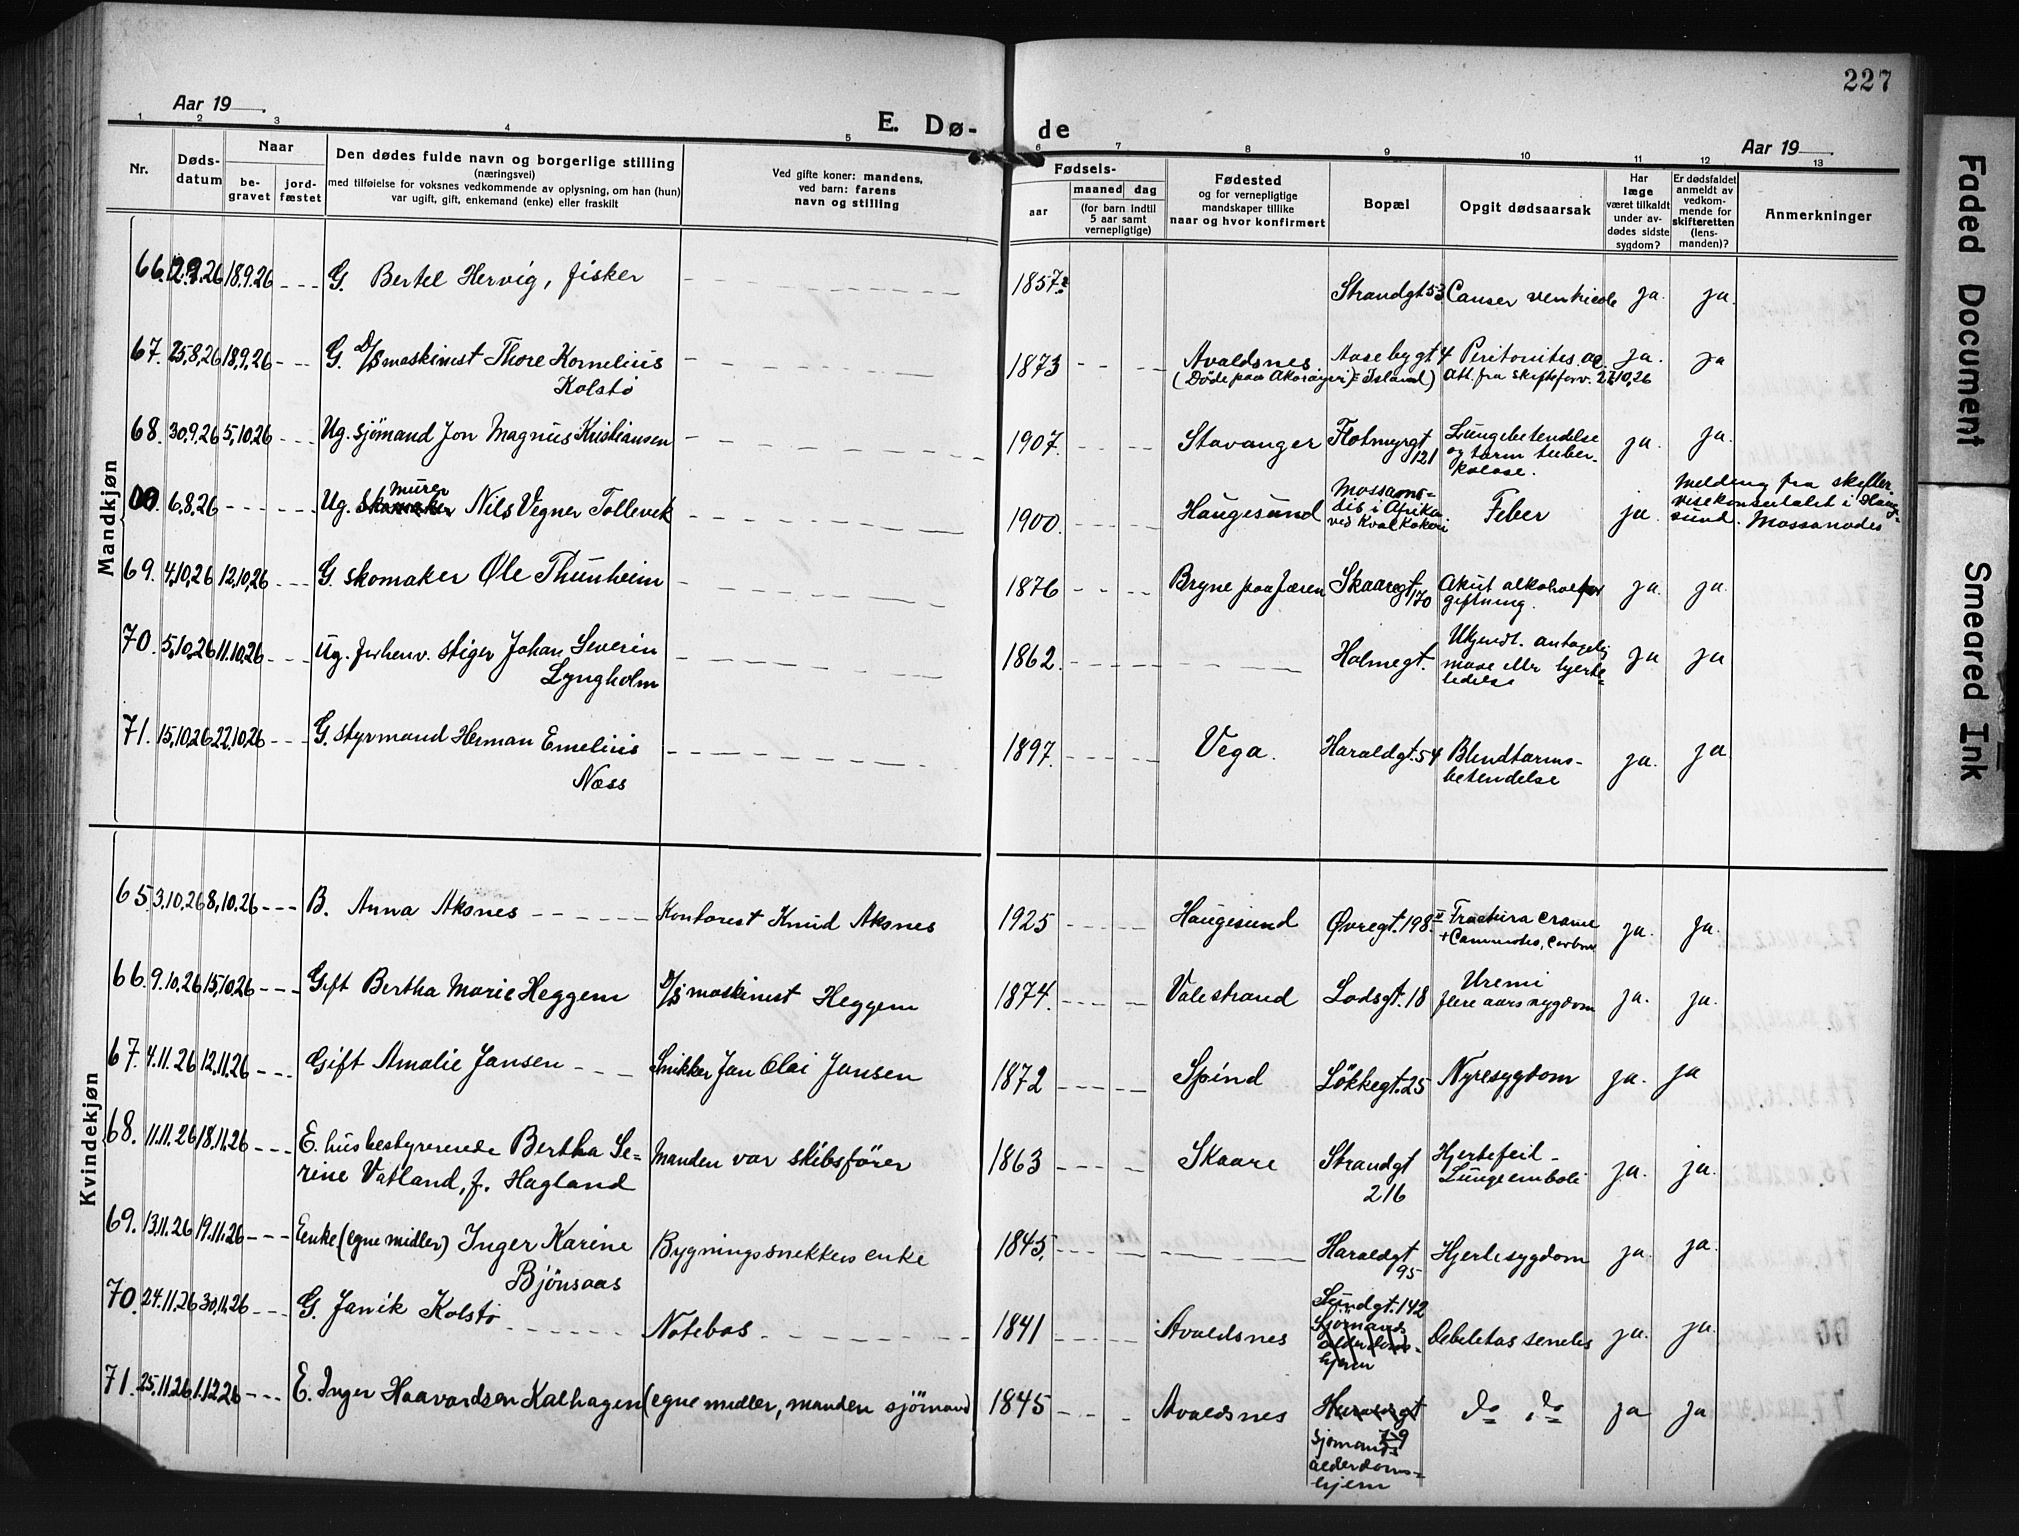 227
Aar 19
E. Dø- de
Aar 19
1 2 3 4 5 6 7 8 9 10 11 12 13
Nr.
Døds-
datum
Naar
be-
gravet
jord-
fæstet
Den dødes fulde navn og borgerlige stilling
(næringsvei)
med tilføielse for voksnes vedkommende av oplysning, om han (hun)
var ugift, gift, enkemand (enke) eller fraskilt
Ved gifte koner: mandens,
ved barn: farens
navn og stilling
Fødsels-
aar
maaned dag
(for barn indtil
5 aar samt
vernepligtige)
Fødested
og for vernepligtige
mandskaper tillike
naar og hvor konfirmert
Bopæl
Opgit dødsaarsak
Har
læge
været tilkaldt
under av-
dødes sidste
sygdom?
Er dødsfaldet
anmeldt av
vedkom-
mende for
skifteretten
(lens-
manden)?
Anmerkninger
Mandkjøn
66. 12.9.26 18.9.26 G. Bertel Hervig, fisker 1857 Strandgt 53 Canser ventricole ja. ja.
67. 25.8.26 18.9.26 G. D/S maskinist Thore Kornelius
Kolstø 1873 Avaldsnes Aasebygt 4 Peritonites. ja. ja
(Døde paa Akureyri = Island) Att. fra skifteforv. 22.10.26
68. 30.9.26 5.10.26 Ug. sjømand Jon Magnus Kristiansen 1907. Stavanger Flotmyrgt
121 Lungebetendelse
og tarm tuber-
kolose. ja. ja.
00. 6.8.26 Ug. skomaker murer Nils Vegner Tollevik 1900. Haugesund Mossamo-
dis i Afrika
ved Kvalkokeri Feber ja. Melding fra
visekonsulatet i Haug-
sund. Mossamodes
69. 4.10.26 12.10.26 G. skomaker Ole Thunheim 1876 Bryne paa Jæren Skaaregt
170 Akut alkoholfor
giftning. ja. ja.
70. 5.10.26 11.10.26 Ug. forhenv. stiger Johan Severin
Lyngholm 1862. Holmegt. Ukjendt. antagelig
mave eller hjerte-
lidelse ja ja
71. 15.10.26 22.10.26 G. styrmand Herman Emelius
Næss 1897. Vega. Haraldgt. 54 Blindtarms-
betendelse ja. ja
Kvindekjøn
65. 3.10.26 8.10.26 B. Anna Aksnes Kontorest Knud Aksnes 1925 Haugesund Øvregt. 198 II Fractura crane
+ ja. ja.
66. 9.10.26 15.10.26 Gift Bertha Marie Heggem D/S maskinist Heggem 1874. Valestrand Lodsgt. 18 Uremi
flere aars sygdom ja. ja.
67. 4.11.26 12.11.26 Gift Amalie Jansen Snikker Jan Olai Jansen 1872 Spind Løkkegt. 25 Nyresygdom ja. ja
68. 11.11.26 18.11.26 E. husbestyrerende Bertha Se-
rine Vatland, f. Hagland Manden var skibsfører 1863 Skaare Strandgt
216 Hjertefeil -
Lungeemboli ja. ja.
69. 13.11.26 19.11.26 Enke (egne midler) Inger Karine
Bjønsaas Bygningssnekkers enke 1845. Haraldgt
95 Hjertesygdom ja. ja.
70. 24.11.26 30.11.26 G. Janik Kolstø Notebas 1841 Avaldsnes Sundgt. 142
Sjømands
alderdoms-
hjem Debeletas seneles ja. ja.
71. 25.11.26 1.12.26 E. Inger Haavardsen Kalhagen (egne midler, manden sjømand) 1845 Avaldsnes Haraldgt
79
sjømands
alderdoms-
hjem do do ja ja
Faded Document
Smeared Ink